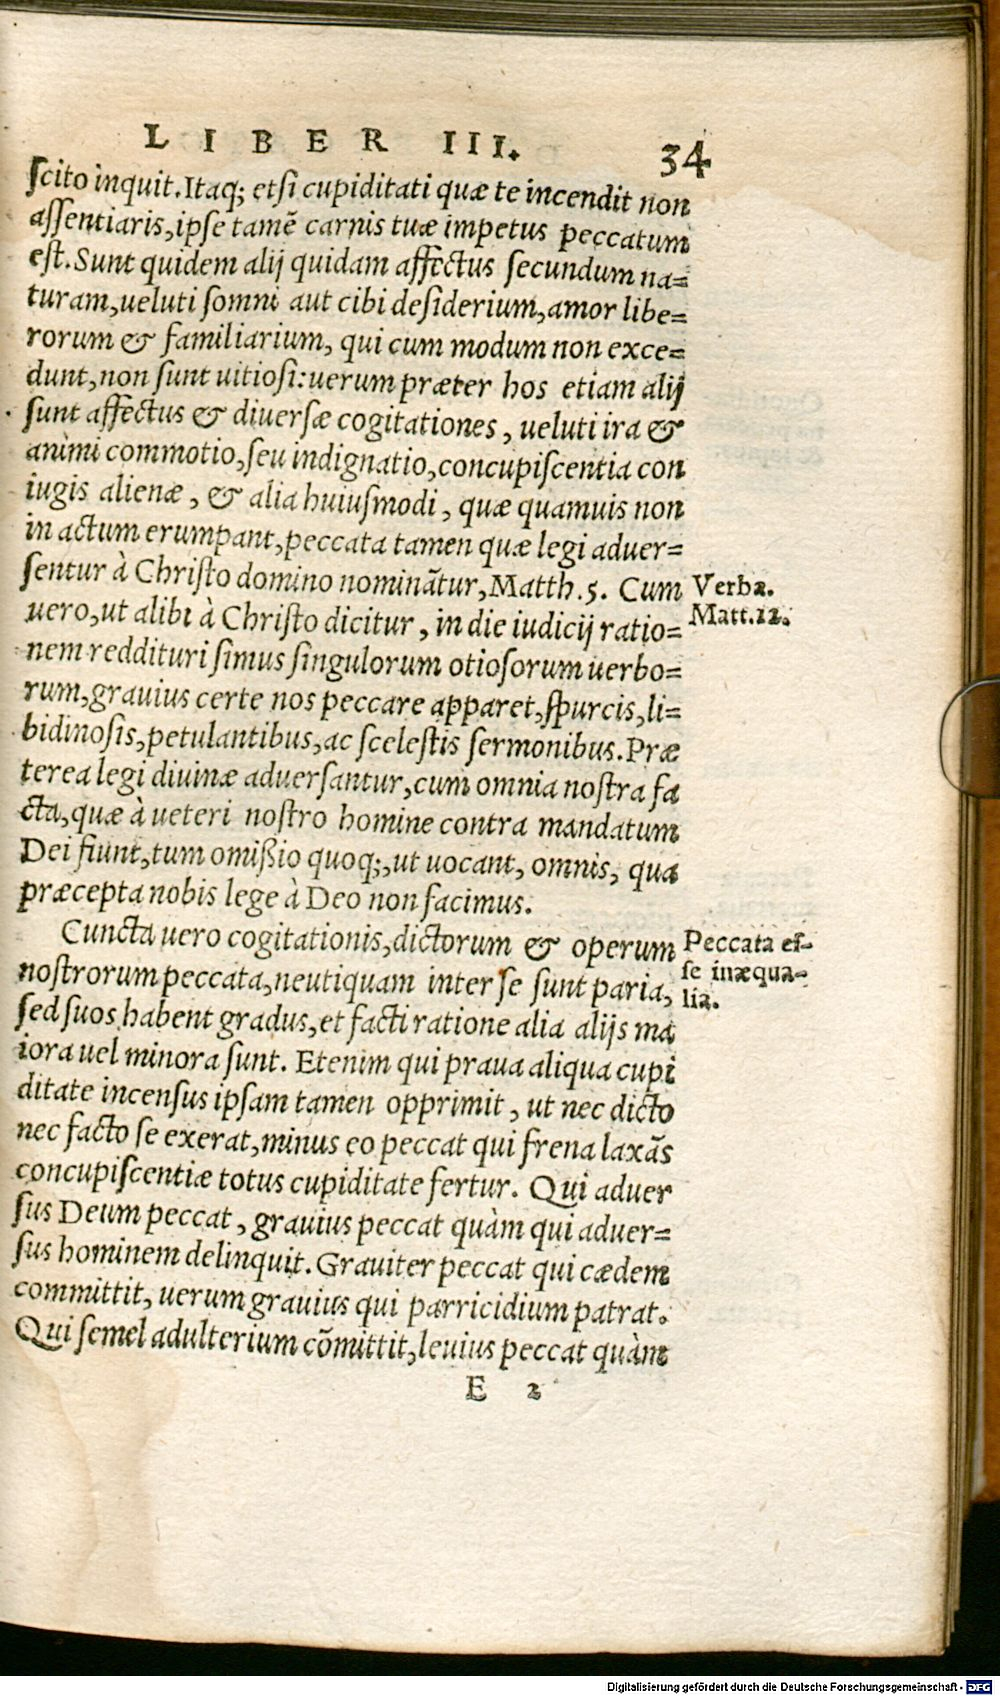 LIBER III. 34
scito inquit. Itaq; etsi cupiditati quæ te incendit non
assentiaris, ipse tamē carnis tuæ impetus peccatum
est. Sunt quidem alij quidam affectus secundum na=
turam, ueluti somni aut cibi desiderium, amor libe=
rorum & familiarium, qui cum modum non exce=
dunt, non sunt uitiosi: uerum præter hos etiam alij
sunt affectus & diuersæ cogitationes, ueluti ira &
animi commotio, seu indignatio, concupiscentia con
iugis alienæ, & alia huiusmodi, quæ quamuis non
in actum erumpant, peccata tamen quæ legi aduer=
sentur à Christo domino nominātur, Matth. 5. Cum
uero, ut alibi à Christo dicitur, in die iudicij ratio=
nem reddituri simus singulorum otiosorum uerbo=
rum, grauius certe nos peccare apparet, spurcis, li=
bidinosis, petulantibus, ac scelestis sermonibus. Præ
terea legi diuinæ aduersantur, cum omnia nostra fa
cta, quæ à ueteri nostro homine contra mandatum
Dei fiunt, tum omißio quoq;, ut uocant, omnis, qua
præcepta nobis lege à Deo non facimus.
Verba.
Matt. 12.
Cuncta uero cogitationis, dictorum & operum
nostrorum peccata, neutiquam inter se sunt paria,
sed suos habent gradus, et facti ratione alia alijs ma
iora uel minora sunt. Etenim qui praua aliqua cupi
ditate incensus ipsam tamen opprimit, ut nec dicto
nec facto se exerat, minus eo peccat qui frena laxās
concupiscentiæ totus cupiditate fertur. Qui aduer
sus Deum peccat, grauius peccat quàm qui aduer=
sus hominem delinquit. Grauiter peccat qui cædem
committit, uerum grauius qui parricidium patrat.
Qui semel adulterium cōmittit, leuius peccat quàm
Peccata es-
se inæqua-
lia.
E 2
Digitalisierung gefördert durch die Deutsche Forschungsgemeinschaft - DFG